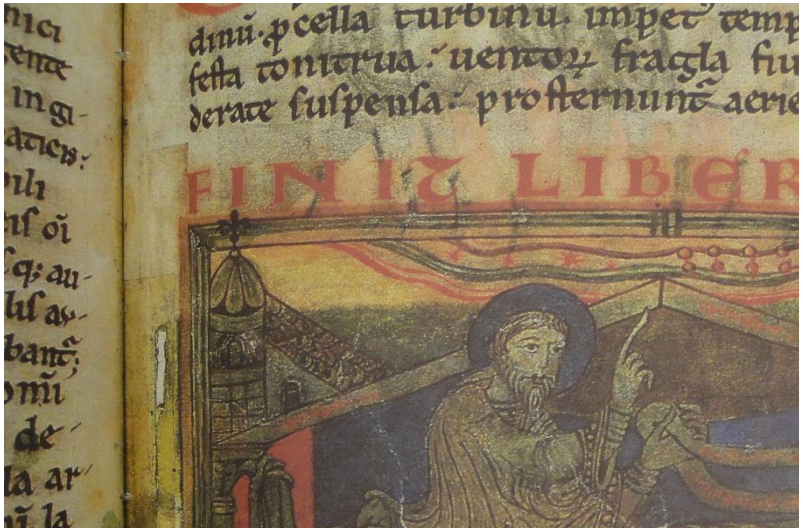 nici
gente
in gi-
aticis:
pili
nis oī
q; au-
lis au-
bant̄:
omī
de
la ar-
nī la
dinū. ꝓcella turbinū. impet᷒ temp
festa tonitrua. uentoꝝ fragla fiu
derate suspensa. prosternunt᷒ aerie
FINIT LIBER